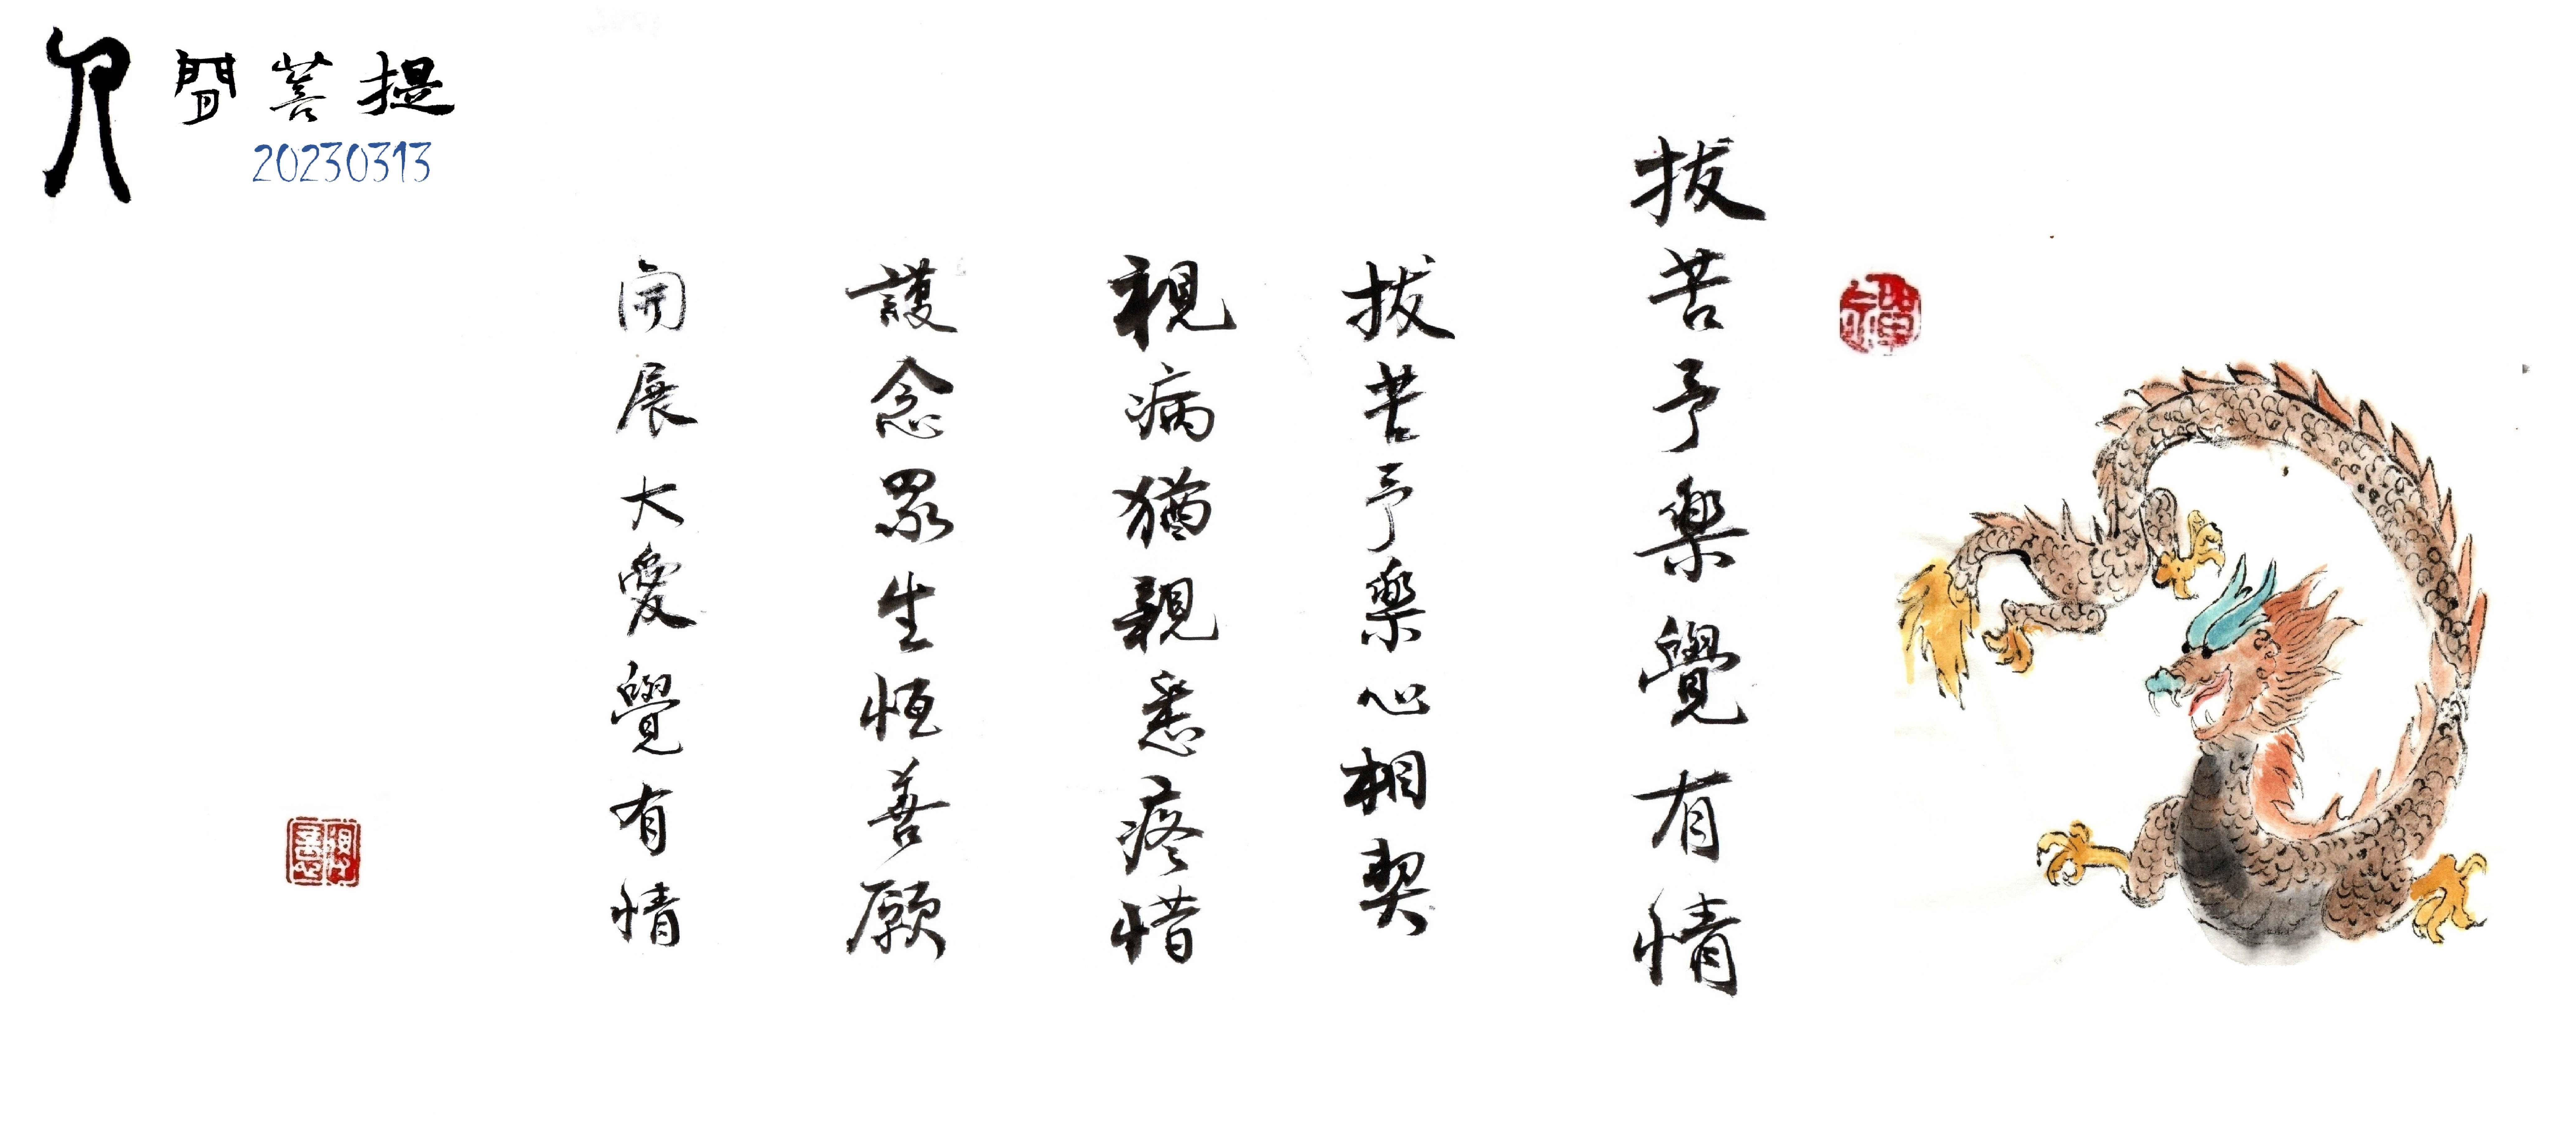 人間菩提
20230313
拔苦予樂覺有情
拔苦予樂心相契
視病猶親悉疼惜
護念眾生恒善願
開展大愛覺有情
禪